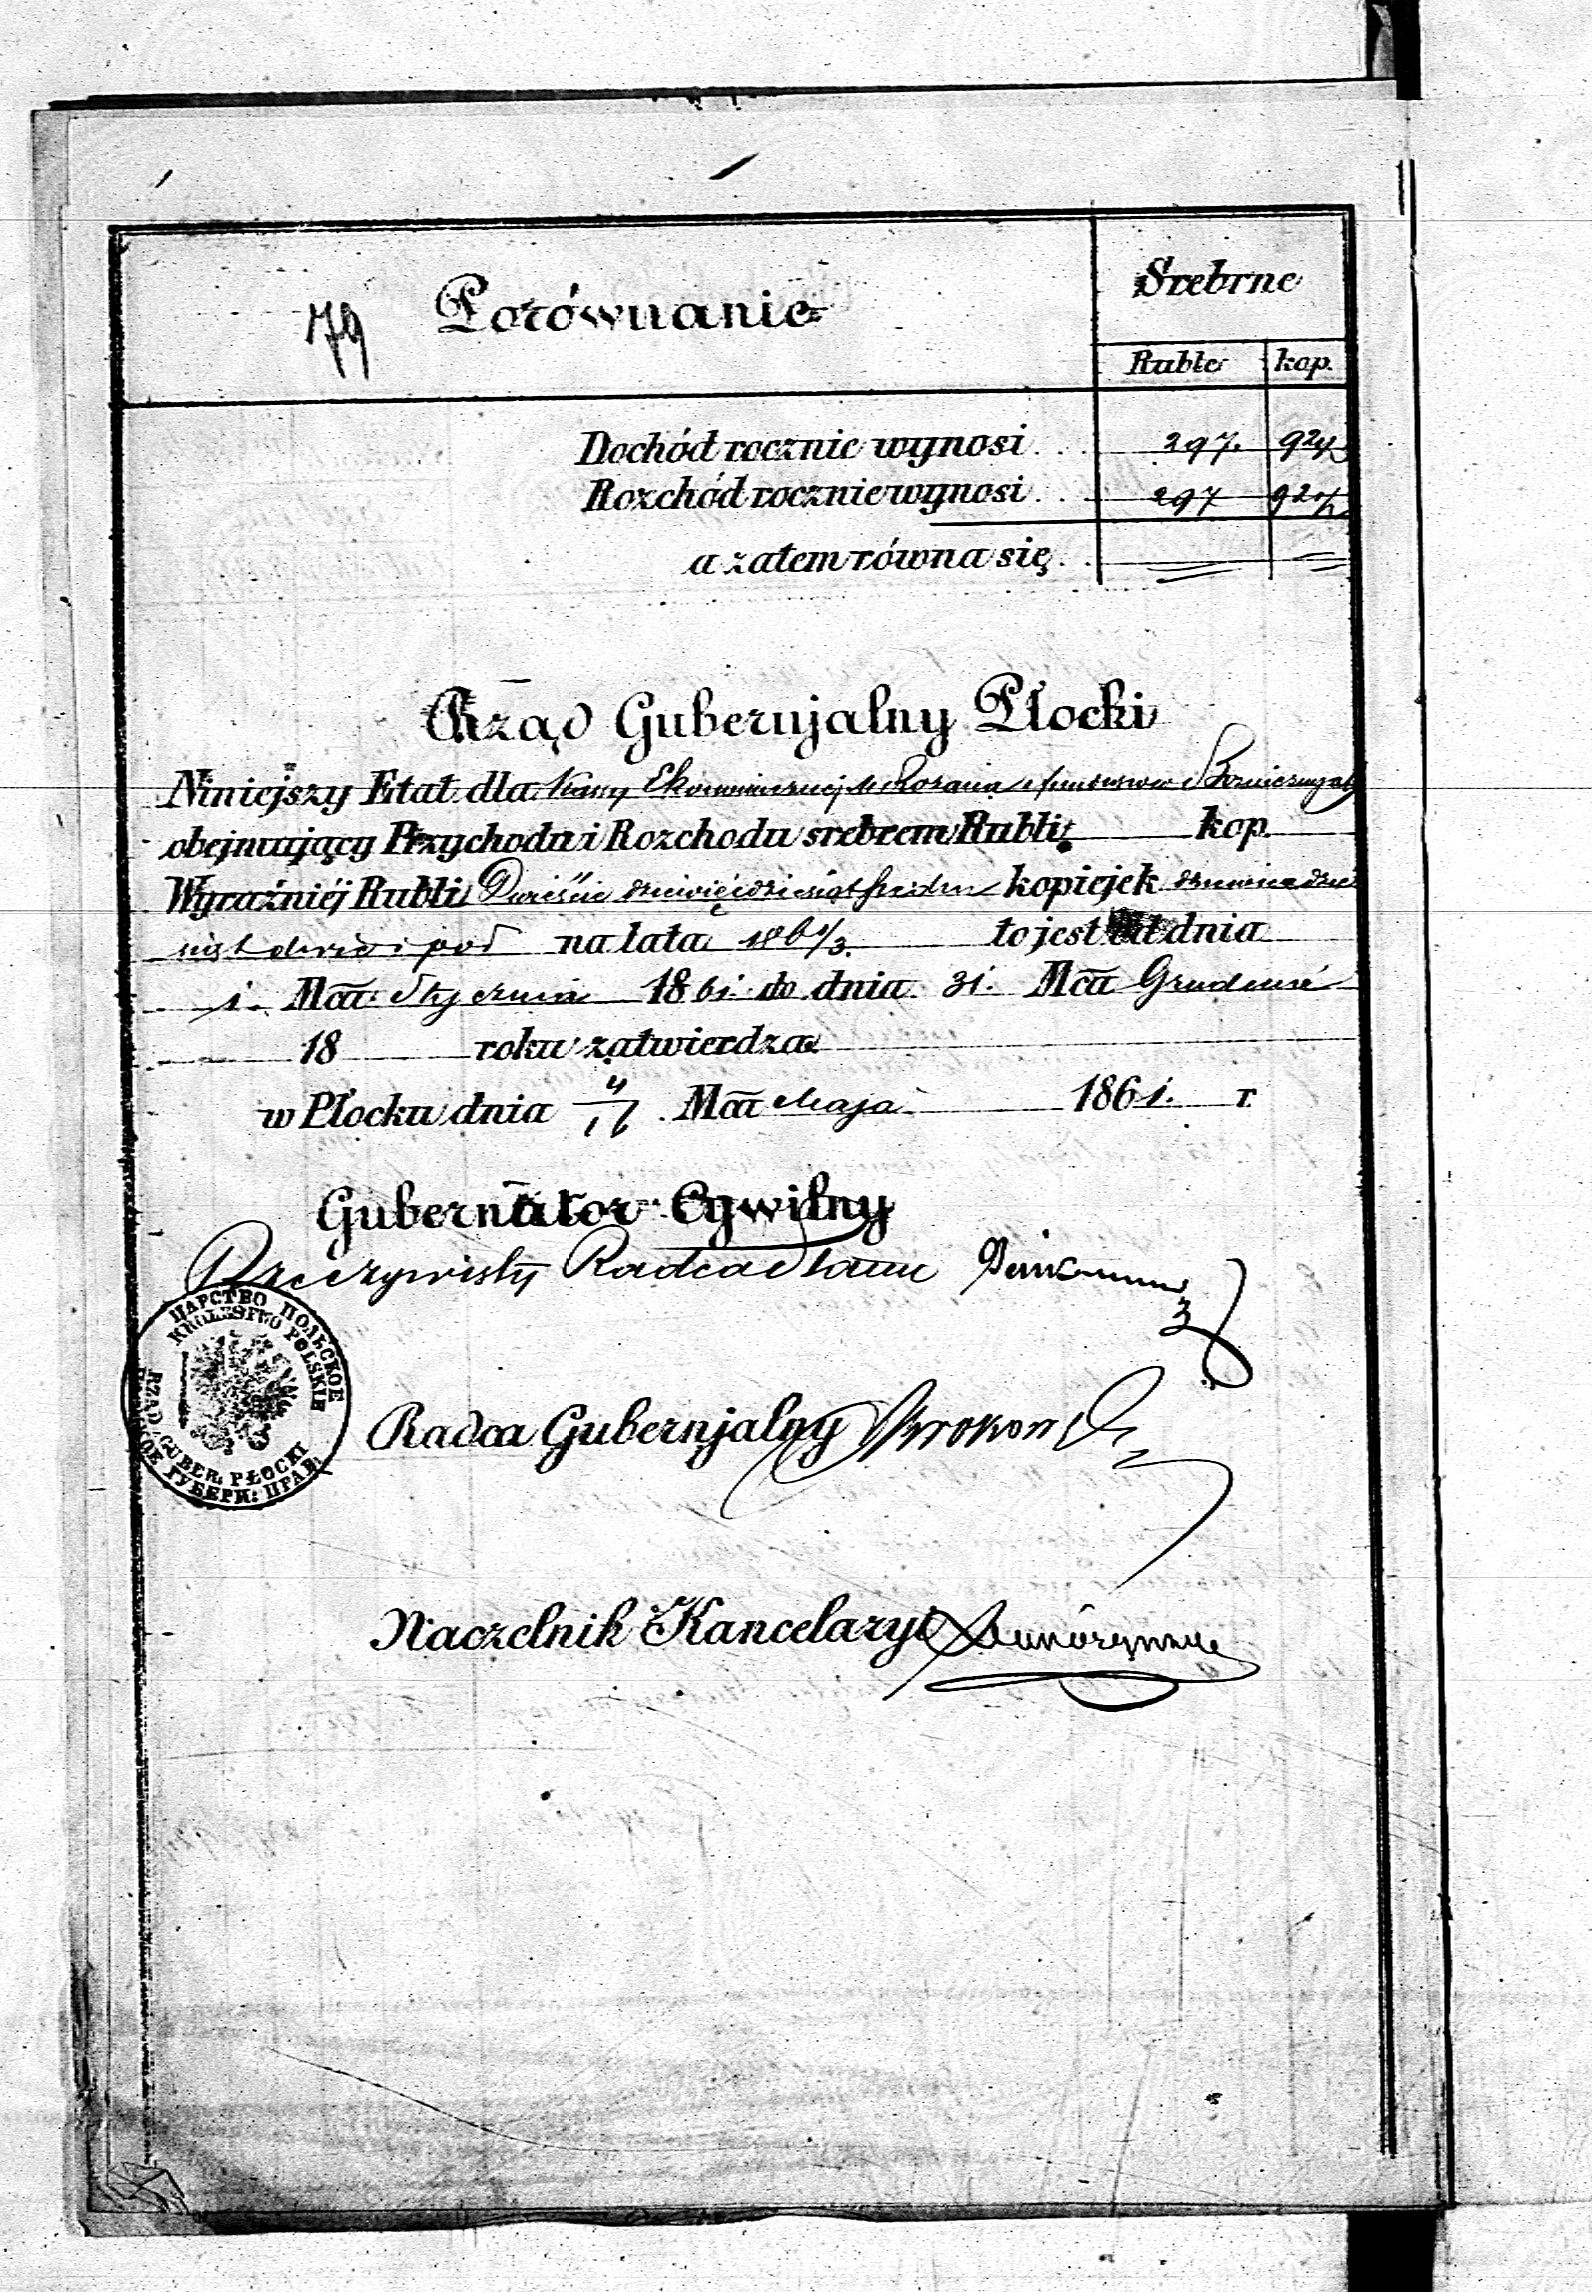 79 Porównanie
Srebrne
Ruble kop.
Dochód rocznie wynosi . . . 297. 92½
Rozchód rocznie wynosi . . . 297 92½
a zatem równa się . . =
Rząd Gubernjalny Płocki
Niniejszy Etat dla Kassy Ekonomicznej M. Rożana z funduszów
obejmujący Przychodu i Rozchodu srebrem Rubli kop
Wyraźniéj Rubli Dwieście dziewięćdziesiąt siedm kopiejek dziewięćdzie
siąt dwie i poł na lata 186 1/3. to jest od dnia
1. Mca Stycznia 1861. do dnia 31. Mca Grudnia
18 roku zatwierdza
w Płocku dnia 4/16 Mca Maja 1861. r.
Gubernator Cywilny
Rzeczywisty Radca Stanu
ЦАРСТВО ПОЛЬСКОЕ
KRÓLESTWO POLSKIE
RZĄD GUBER. PŁOCKI
ГУБЕРН: ПРАВ:
Radca Gubernjalny
Naczelnik Kancelaryi